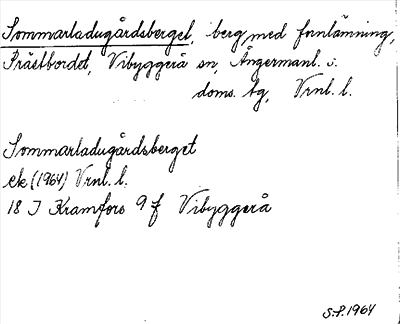 Sommarladugårdsberget, berg med fornlämning,
Prästbordet, Vibyggerå sn, Ångermanl. s.
doms. tg, Vrnl. l.
Sommarladugårdsberget
ek (1964) Vrnl. l.
18 J Kramfors 9 f Vibyggerå
S.P. 1964